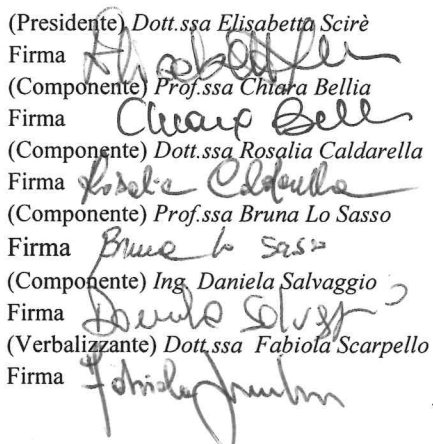 (Presidente) Dott.ssa Elisabetta Scirè
Firma
(Componente) Prof.ssa Chiara Bellia
Firma Chiara Bell
(Componente) Dott.ssa Rosalia Caldarella
Firma Rosalia Caldarella
(Componente) Prof.ssa Bruna Lo Sasso
Firma Bruna Lo Sasso
(Componente) Ing. Daniela Salvaggio
Firma
(Verbalizzante) Dott.ssa Fabiola Scarpello
Firma Fabiola